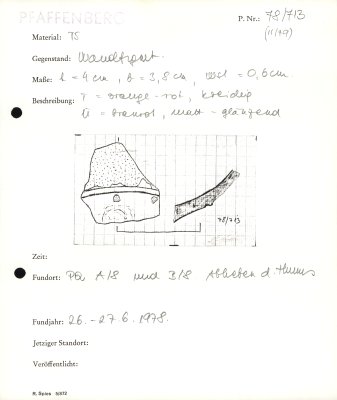 PFAFFENBERG
P. Nr.: 78/713
Material: TS
Gegenstand: Wandfgmt.
Maße: L = 4 cm, b = 3,8 cm, Wst = 0,6 cm
Beschreibung: T = orange-rot, kreidig
Ü = braunrot, matt-glänzend
78/713
Zeit:
Fundort: PQ A/8 und B/8 Abheben d. Humus
Fundjahr: 26.-27.6.1978.
Jetziger Standort:
Veröffentlicht:
R. Spies 5/872